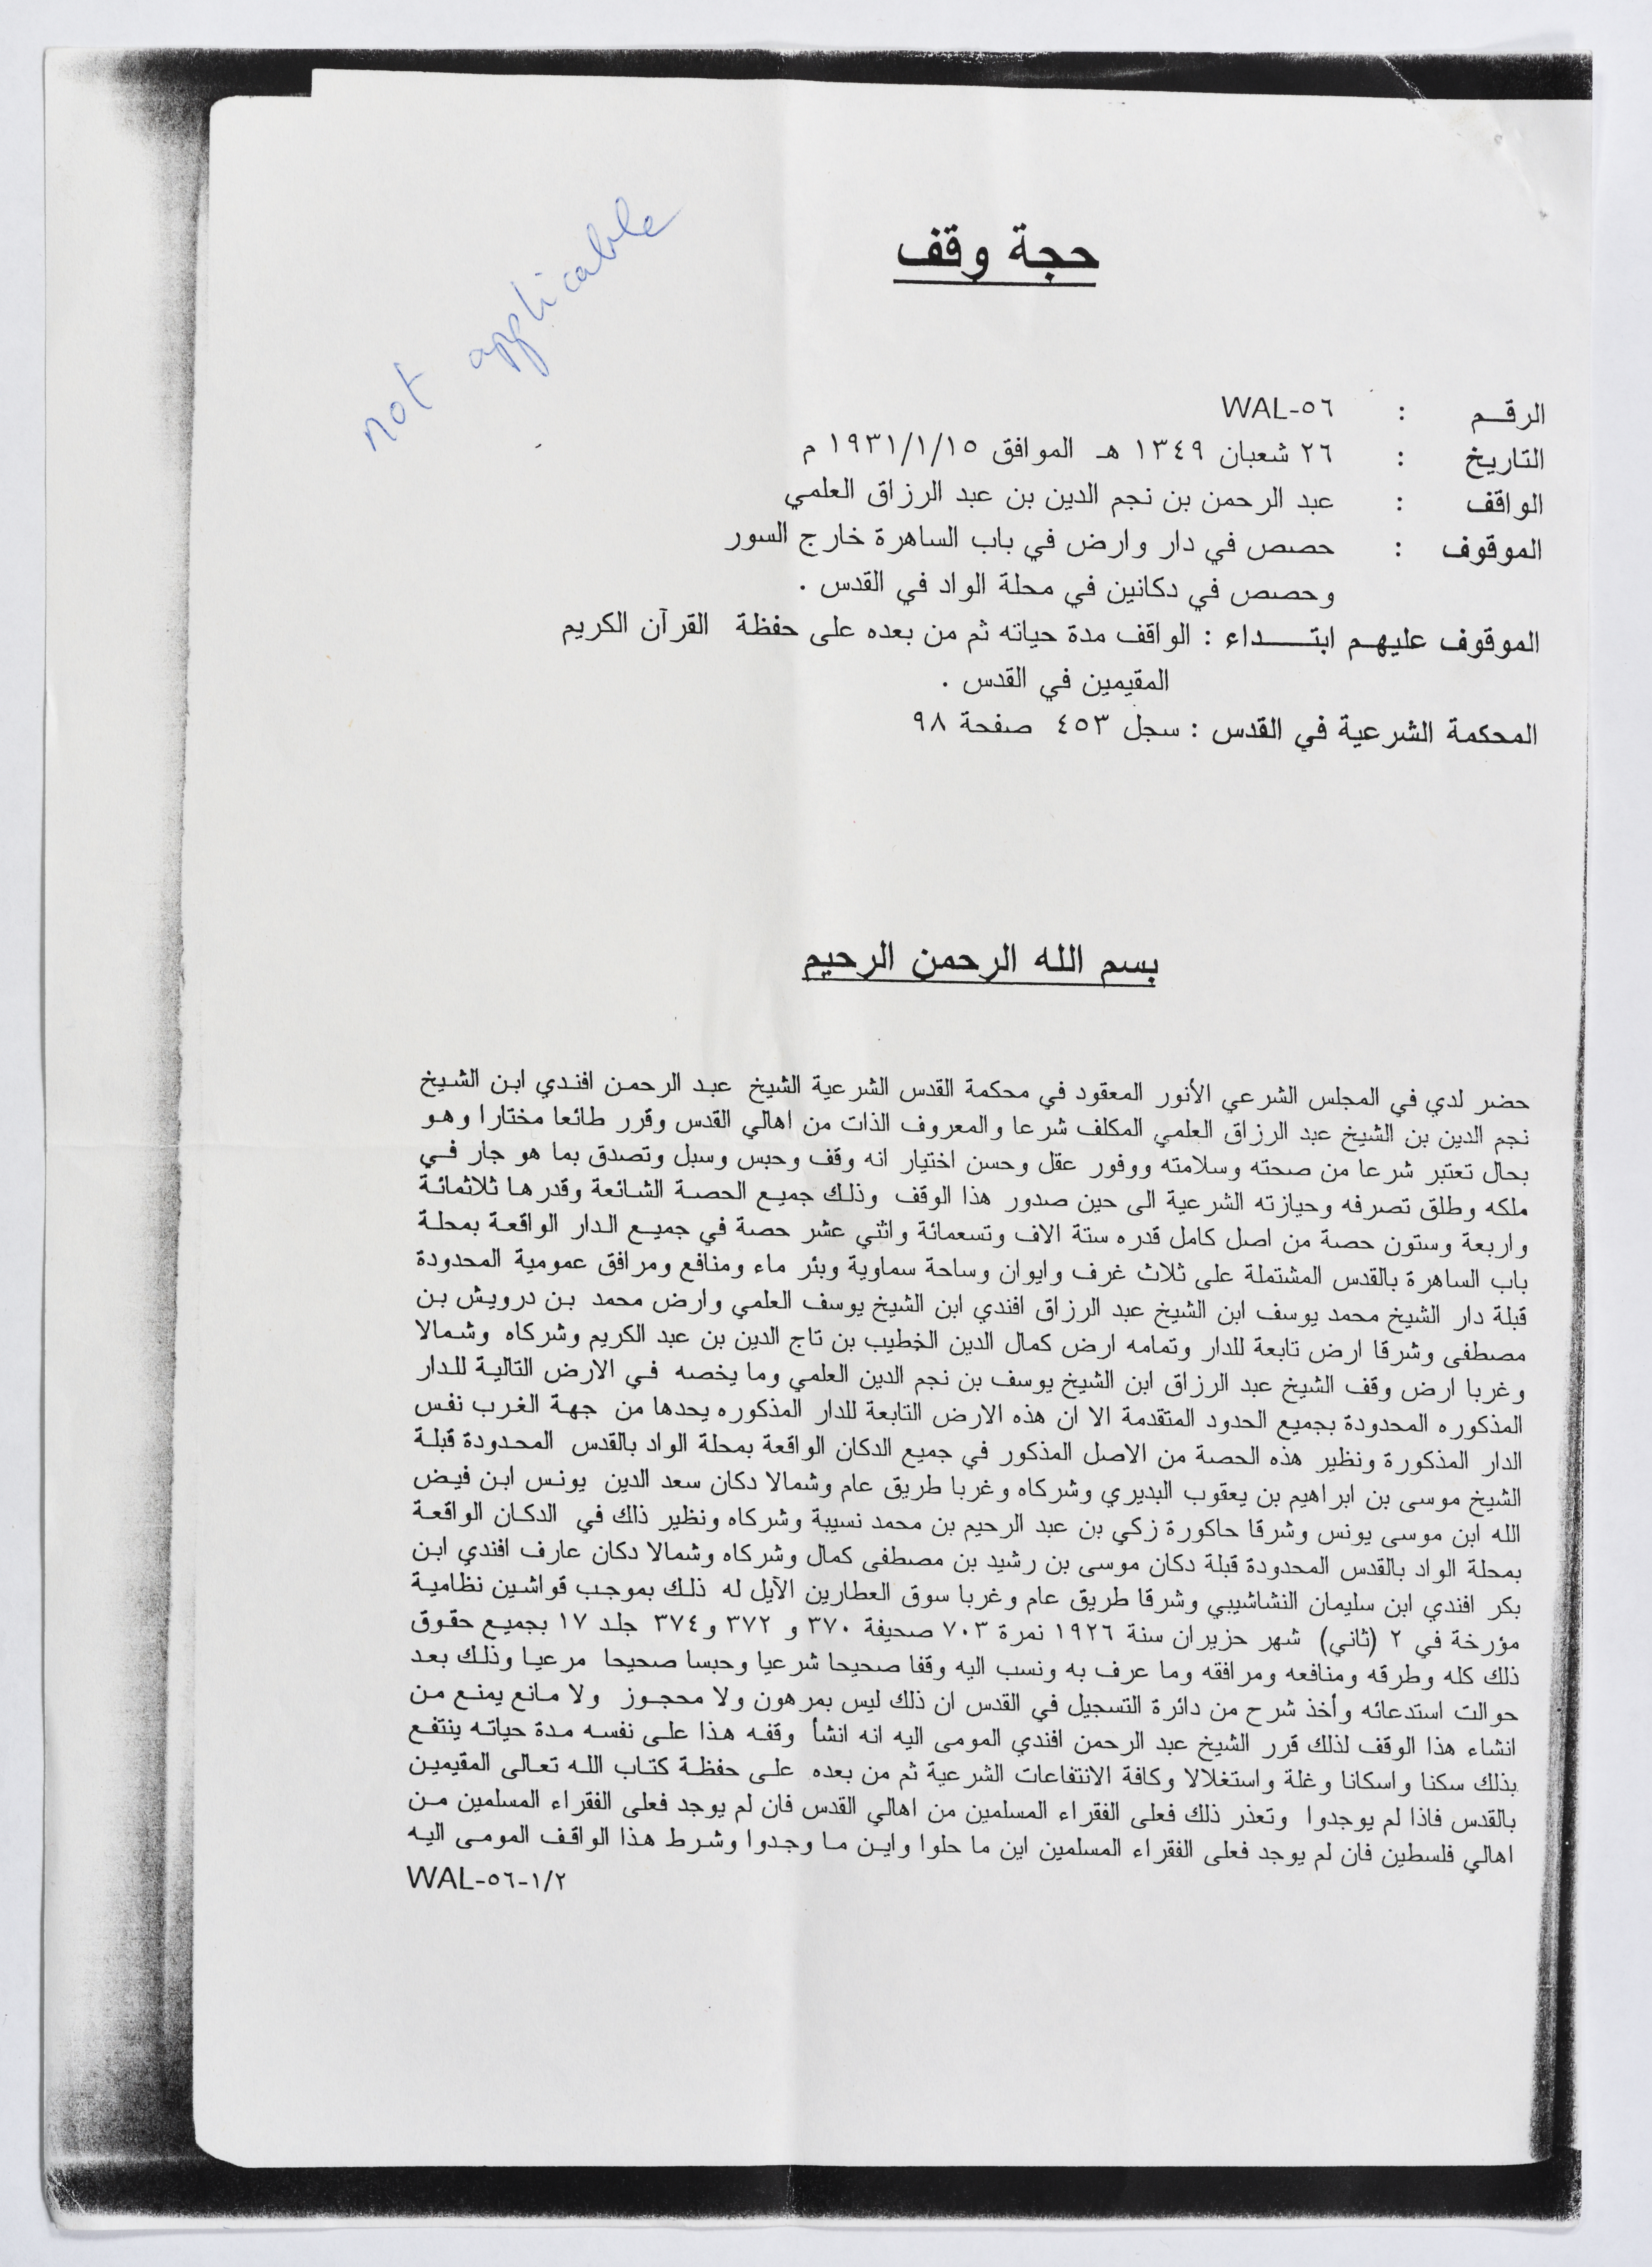 not applicable
حجة وقف
الرقم : WAL-٥٦
التاريخ : ٢٦ شعبان ١٣٤٩ هـ الموافق ١٩٣١/١/١٥ م
الواقف : عبد الرحمن بن نجم الدين بن عبد الرزاق العلمي
الموقوف : حصص في دار وارض في باب الساهرة خارج السور
وحصص في دكانين في محلة الواد في القدس .
الموقوف عليهم ابتداء : الواقف مدة حياته ثم من بعده على حفظة القرآن الكريم
المقيمين في القدس .
المحكمة الشرعية في القدس : سجل ٤٥٣ صفحة ٩٨
بسم الله الرحمن الرحيم
حضر لدي في المجلس الشرعي الأنور المعقود في محكمة القدس الشرعية الشيخ عبد الرحمن افندي ابن الشيخ
نجم الدين بن الشيخ عبد الرزاق العلمي المكلف شرعا والمعروف الذات من اهالي القدس وقرر طائعا مختارا وهو
بحال تعتبر شرعا من صحته وسلامته ووفور عقل وحسن اختيار انه وقف وحبس وسبل وتصدق بما هو جار في
ملكه وطلق تصرفه وحيازته الشرعية الى حين صدور هذا الوقف وذلك جميع الحصة الشائعة وقدرها ثلاثمائة
واربعة وستون حصة من اصل كامل قدره ستة الاف وتسعمائة واثني عشر حصة في جميع الدار الواقعة بمحلة
باب الساهرة بالقدس المشتملة على ثلاث غرف وايوان وساحة سماوية وبئر ماء ومنافع ومرافق عمومية المحدودة
قبلة دار الشيخ محمد يوسف ابن الشيخ عبد الرزاق افندي ابن الشيخ يوسف العلمي وارض محمد بن درويش بن
مصطفى وشرقا ارض تابعة للدار وتمامه ارض كمال الدين الخطيب بن تاج الدين بن عبد الكريم وشركاه وشمالا
وغربا ارض وقف الشيخ عبد الرزاق ابن الشيخ يوسف بن نجم الدين العلمي وما يخصه في الارض التالية للدار
المذكوره المحدودة بجميع الحدود المتقدمة الا ان هذه الارض التابعة للدار المذكوره يحدها من جهة الغرب نفس
الدار المذكورة ونظير هذه الحصة من الاصل المذكور في جميع الدكان الواقعة بمحلة الواد بالقدس المحدودة قبلة
الشيخ موسى بن ابراهيم بن يعقوب البديري وشركاه وغربا طريق عام وشمالا دكان سعد الدين يونس ابن فيض
الله ابن موسى يونس وشرقا حاكورة زكي بن عبد الرحيم بن محمد نسيبة وشركاه ونظير ذلك في الدكان الواقعة
بمحلة الواد بالقدس المحدودة قبلة دكان موسى بن رشيد بن مصطفى كمال وشركاه وشمالا دكان عارف افندي ابن
بكر افندي ابن سليمان النشاشيبي وشرقا طريق عام وغربا سوق العطارين الآيل له ذلك بموجب قواشين نظامية
مؤرخة في ٢ (ثاني) شهر حزيران سنة ١٩٢٦ نمرة ٧٠٣ صحيفة ٣٧٠ و ٣٧٢ و ٣٧٤ جلد ١٧ بجميع حقوق
ذلك كله وطرقه ومنافعه ومرافقه وما عرف به ونسب اليه وقفا صحيحا شرعيا وحبسا صحيحا مرعيا وذلك بعد
حوالت استدعائه وأخذ شرح من دائرة التسجيل في القدس ان ذلك ليس بمرهون ولا محجوز ولا مانع يمنع من
انشاء هذا الوقف لذلك قرر الشيخ عبد الرحمن افندي المومى اليه انه انشأ وقفه هذا على نفسه مدة حياته ينتفع
بذلك سكنا واسكانا وغلة واستغلالا وكافة الانتفاعات الشرعية ثم من بعده على حفظة كتاب الله تعالى المقيمين
بالقدس فاذا لم يوجدوا وتعذر ذلك فعلى الفقراء المسلمين من اهالي القدس فان لم يوجد فعلى الفقراء المسلمين من
اهالي فلسطين فان لم يوجد فعلى الفقراء المسلمين اين ما حلوا واين ما وجدوا وشرط هذا الواقف المومى اليه
WAL-٥٦-١/٢